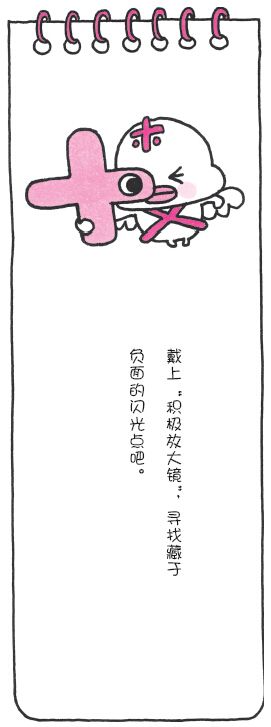 戴上“积极放大镜”，寻找藏于
负面的闪光点吧。